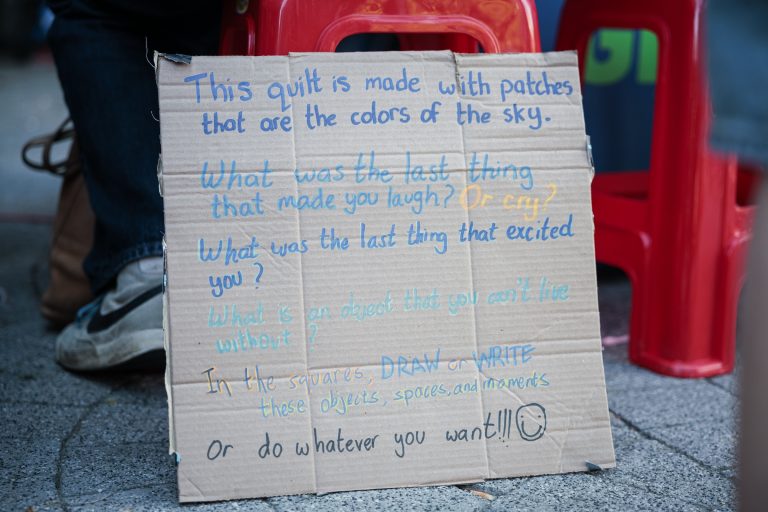 This quilt is made with patches
that are the colors of the sky.
What was the last thing
that made you laugh? Or cry?
What was the last thing that excited
you?
What is an object that you can't live
without?
In the squares, DRAW or WRITE
these objects, spaces, and moments
Or do whatever you want!!!